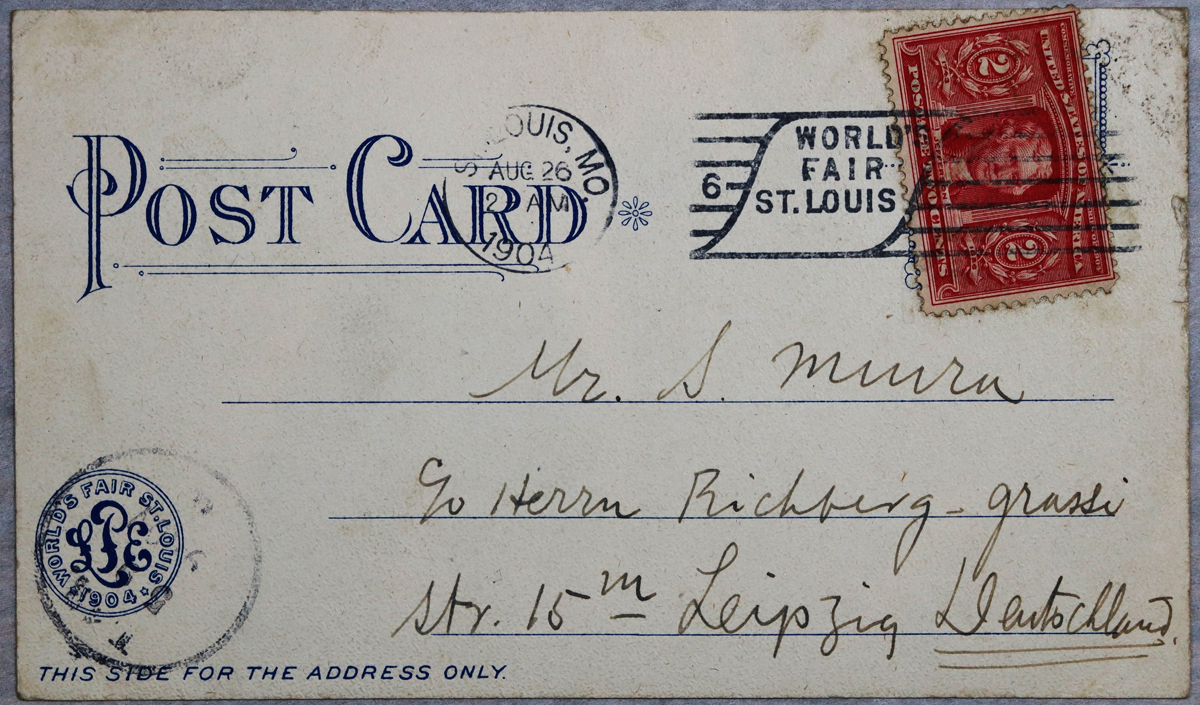 POST CARD
ST. LOUIS, MO.
AUG 26
2 AM
1904
6
WORLD'S
FAIR
ST. LOUIS
UNITED STATES OF AMERICA
POSTAGE TWO CENTS
2
2
Mr. S. Miura
c/o Herrn Richberg - grassi
str. 15 m Leipzig Deutschland.
WORLD'S FAIR ST. LOUIS
LPE
1904
THIS SIDE FOR THE ADDRESS ONLY.